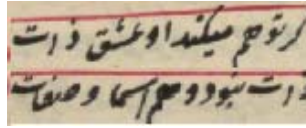 کر توهم میکند او عشق ذات
ذات نبود وهم اسما و صفات